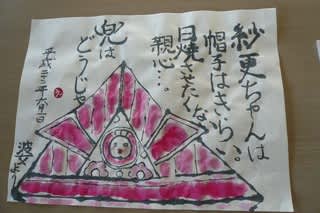 紗更ちゃんは
帽子はきらい。
日焼させたくない
親心…。
兜は
どうじゃ
平成二十二年六月一日